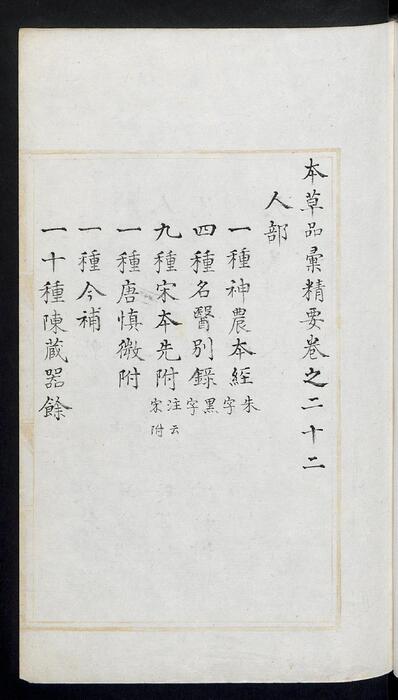 本草品彚精要卷之二十二
人部
一種神農本經朱字
四種名醫别錄黑字
九種宋本先附注云宋附
一種唐慎微附
一種今補
一十種陳藏器餘